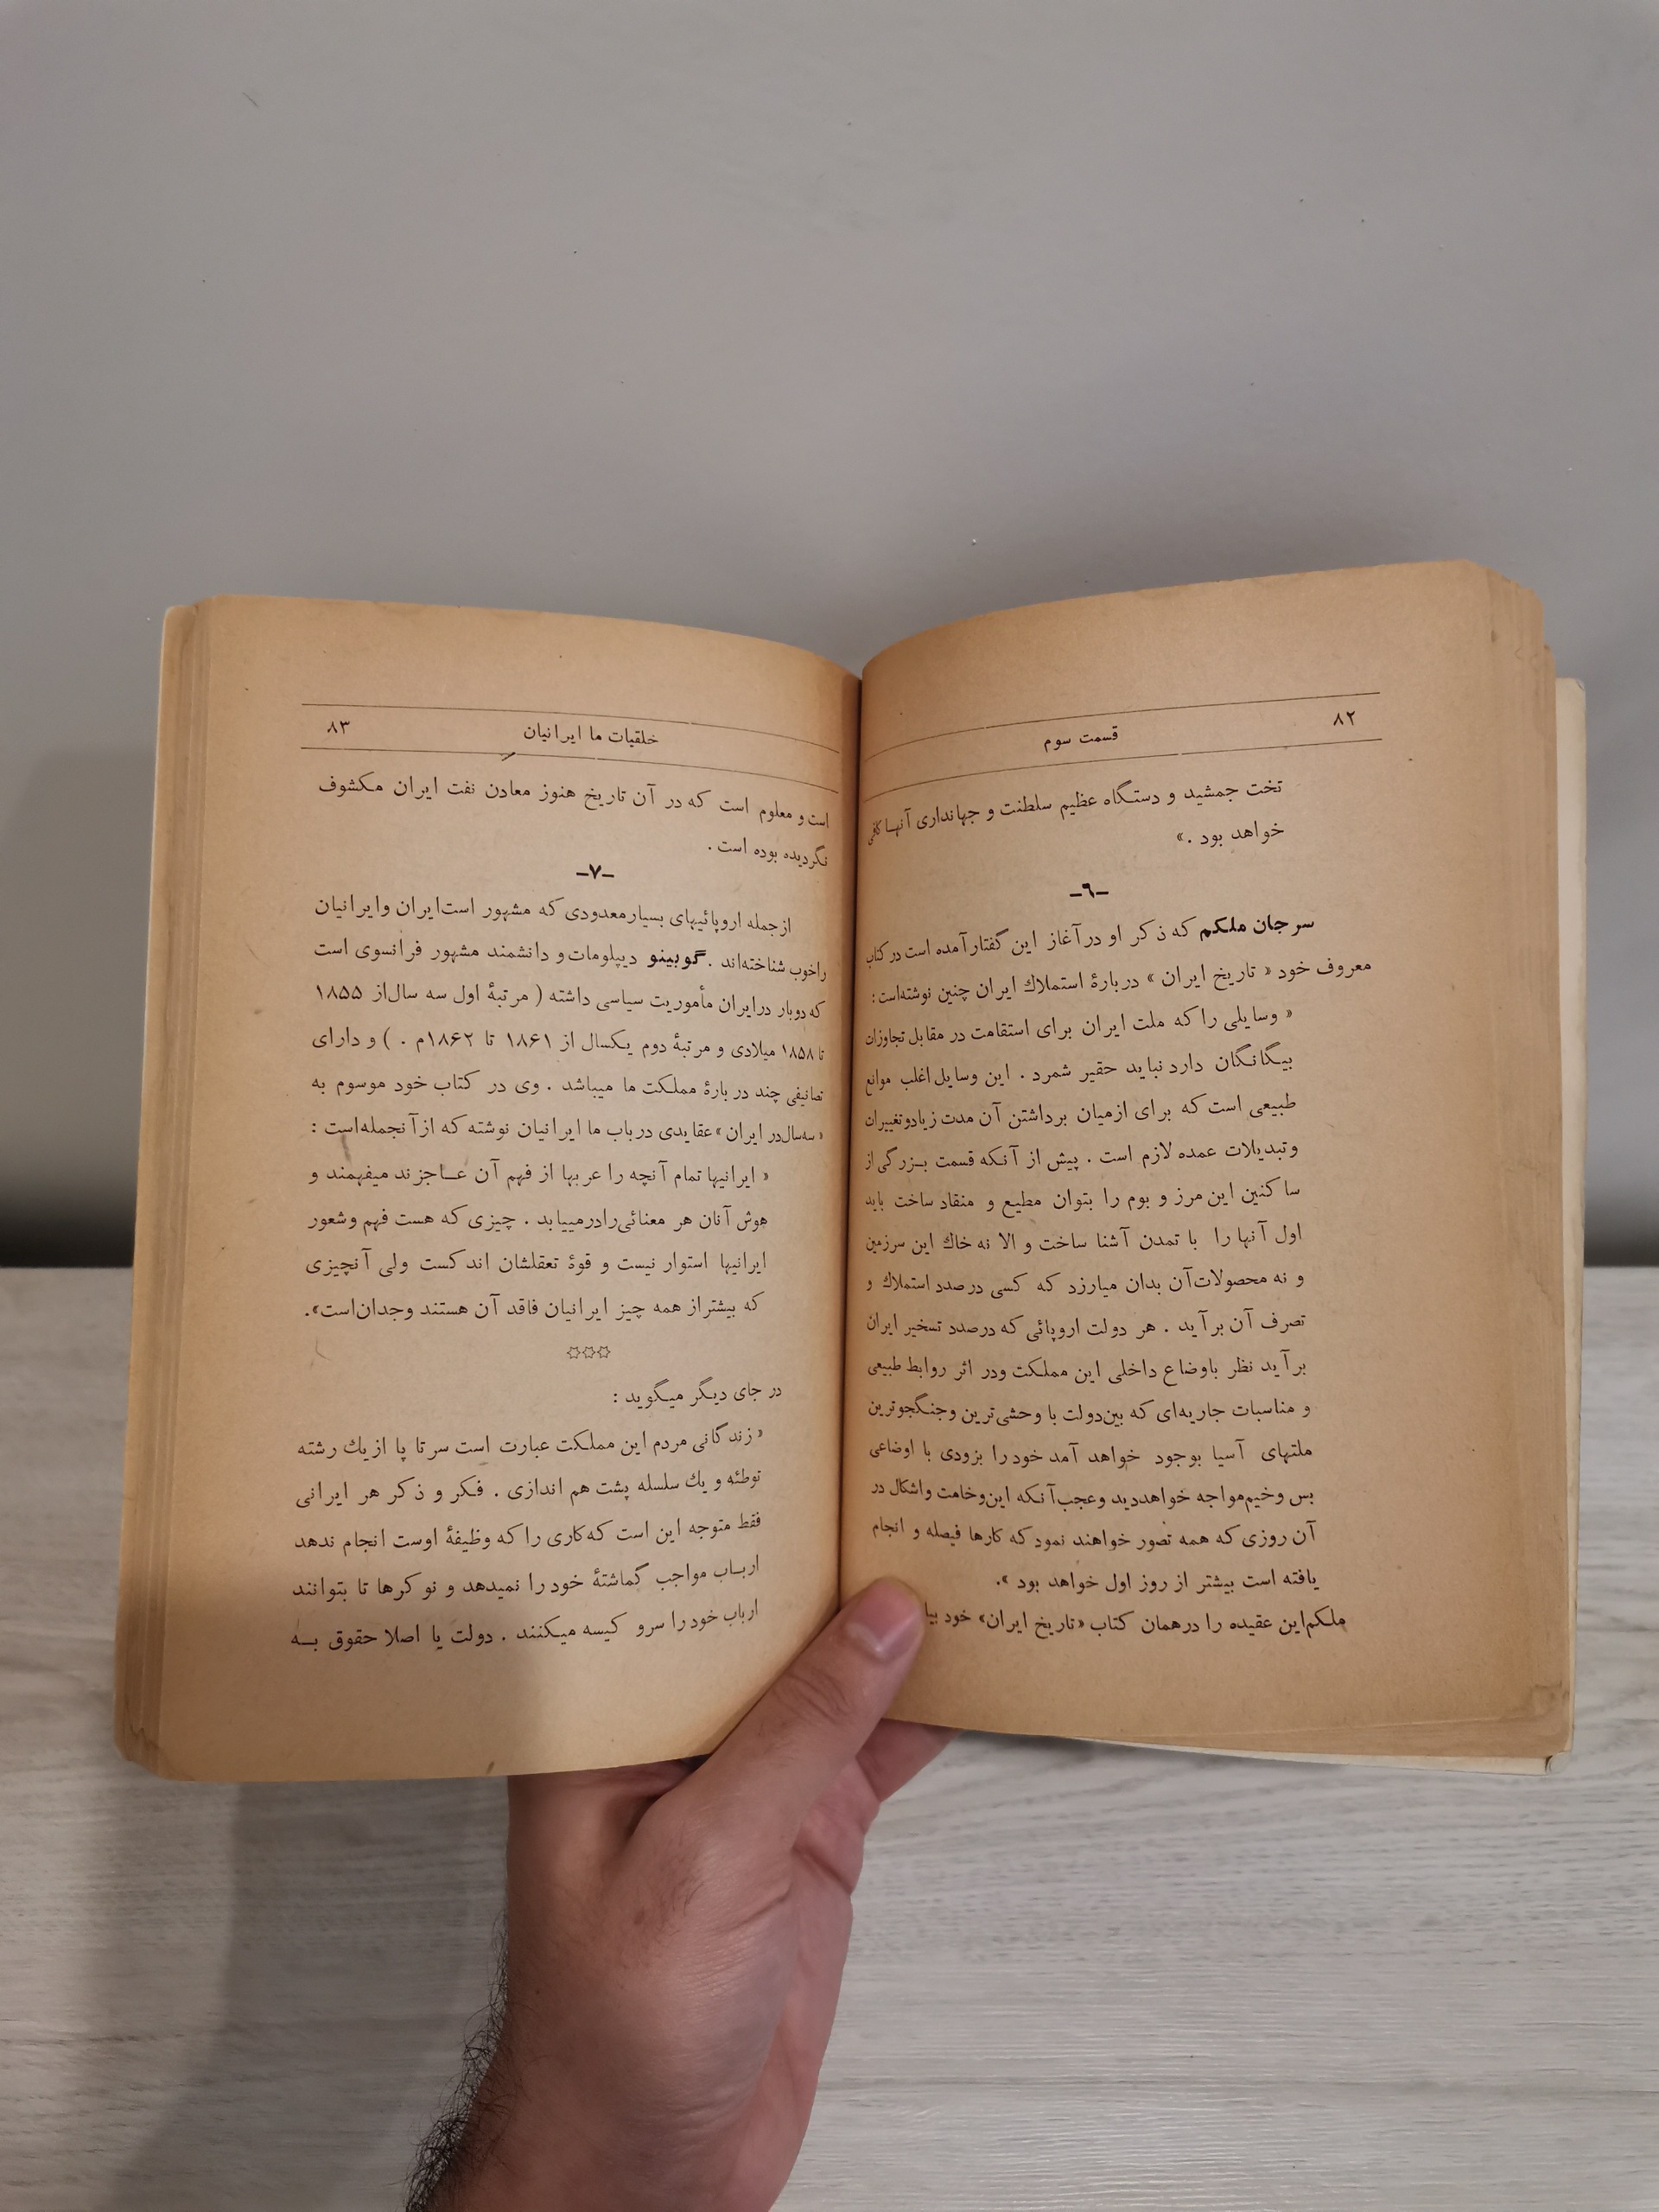 ۸۲
قسمت سوم
تخت جمشید و دستگاه عظیم سلطنت و جهانداری آنها کافی
خواهد بود .»
-۶-
سرجان ملکم که ذکر او در آغاز این گفتار آمده است در کتاب
معروف خود « تاریخ ایران » دربارهٔ استملاك ایران چنین نوشته‌است :
« وسایلی را که ملت ایران برای استقامت در مقابل تجاوزات
بیگانگان دارد نباید حقیر شمرد . این وسایل اغلب موانع
طبیعی است که برای ازمیان برداشتن آن مدت زیادوتغییرات
وتبدیلات عمده لازم است . پیش از آنکه قسمت بزرگی از
ساکنین این مرز و بوم را بتوان مطیع و منقاد ساخت باید
اول آنها را با تمدن آشنا ساخت و الا نه خاك این سرزمین
و نه محصولات‌آن بدان میارزد که کسی درصدد استملاك و
تصرف آن برآید . هر دولت اروپائی که درصدد تسخیر ایران
برآید نظر باوضاع داخلی این مملکت ودر اثر روابط طبیعی
و مناسبات جاریه‌ای که بین‌دولت با وحشی‌ترین وجنگجوترین
ملتهای آسیا بوجود خواهد آمد خودرا بزودی با اوضاعی
بس وخیم‌مواجه خواهددید وعجب‌آنکه این‌وخامت واشکال در
آن روزی که همه تصور خواهند نمود که کارها فیصله و انجام
یافته است بیشتر از روز اول خواهد بود ».
ملکم‌این عقیده را درهمان کتاب «تاریخ ایران» خود
خلقیات ما ایرانیان
۸۳
است و معلوم است که در آن تاریخ هنوز معادن نفت ایران مکشوف
نگردیده بوده است .
-۷-
ازجمله اروپائیهای بسیارمعدودی که مشهور است‌ایران وایرانیان
راخوب شناخته‌اند . گوبینو دیپلومات و دانشمند مشهور فرانسوی است
که دوبار درایران مأموریت سیاسی داشته ( مرتبهٔ اول سه سال‌از ۱۸۵۵
تا ۱۸۵۸ میلادی و مرتبهٔ دوم یکسال از ۱۸۶۱ تا ۱۸۶۲م . ) و دارای
تصانیفی چند دربارهٔ مملکت ما میباشد . وی در کتاب خود موسوم به
« سه‌سال‌در ایران » عقایدی درباب ما ایرانیان نوشته که ازآنجمله‌است :
« ایرانیها تمام آنچه را عربها از فهم آن عاجزند میفهمند و
هوش آنان هر معنائی‌رادرمییابد . چیزی که هست فهم وشعور
ایرانیها استوار نیست و قوهٔ تعقلشان اندکست ولی آنچیزی
که بیشتراز همه چیز ایرانیان فاقد آن هستند وجدان‌است».
✩✩✩
در جای دیگر میگوید :
« زندگانی مردم این مملکت عبارت است سرتا پا ازیك رشته
توطئه و یك سلسله پشت هم اندازی . فکر و ذکر هر ایرانی
فقط متوجه این است که کاری را که وظیفهٔ اوست انجام ندهد
ارباب مواجب گماشتهٔ خود را نمیدهد و نوکرها تا بتوانند
ارباب خودرا سرو کیسه میکنند . دولت یا اصلا حقوق به